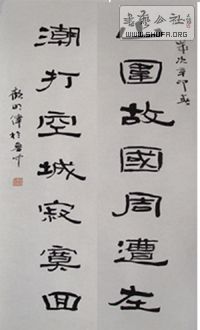 山圍故國周遭在
潮打空城寂寞回
歲次辛卯
書藝公社
WWW.SHUFA.ORG